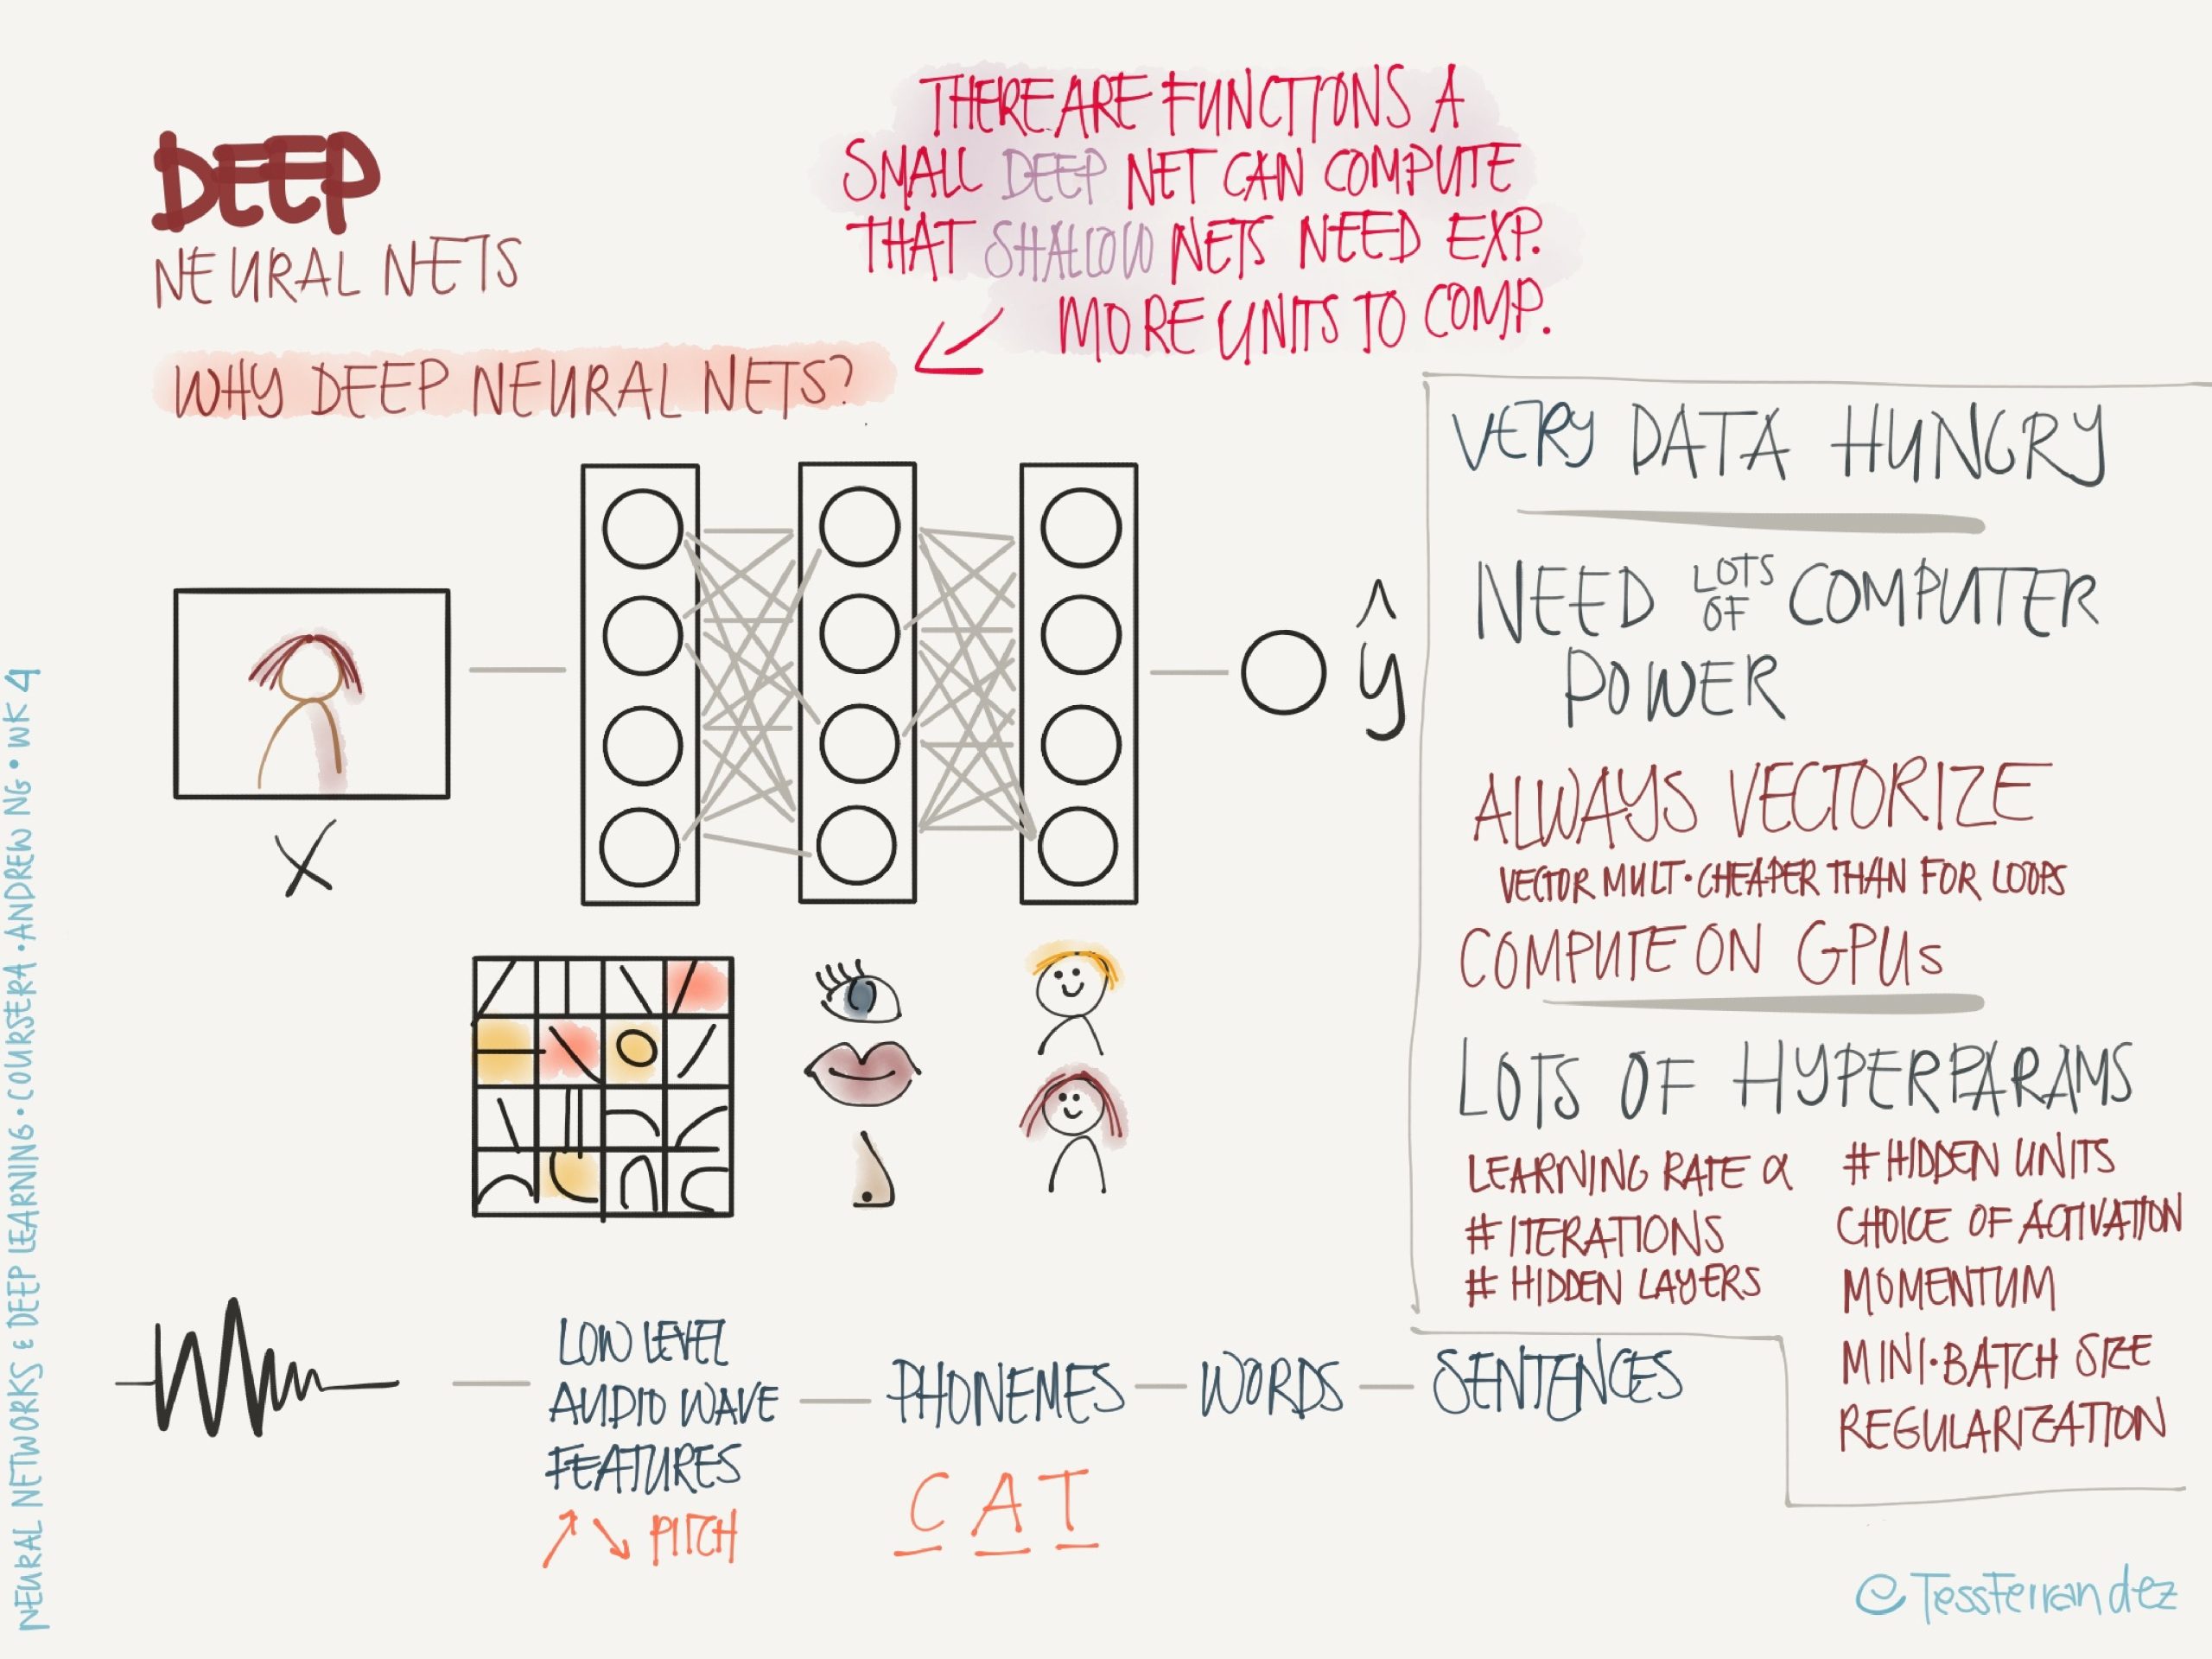 DEEP
NEURAL NETS
THERE ARE FUNCTIONS A
SMALL DEEP NET CAN COMPUTE
THAT SHALLOW NETS NEED EXP.
MORE UNITS TO COMP.
WHY DEEP NEURAL NETS?
X
ŷ
VERY DATA HUNGRY
NEED LOTS OF COMPUTER
POWER
ALWAYS VECTORIZE
VECTOR MULT. CHEAPER THAN FOR LOOPS
COMPUTE ON GPUs
LOTS OF HYPERPARAMS
LEARNING RATE α
# ITERATIONS
# HIDDEN LAYERS
# HIDDEN UNITS
CHOICE OF ACTIVATION
MOMENTUM
MINI-BATCH SIZE
REGULARIZATION
LOW LEVEL
AUDIO WAVE
FEATURES
↗ ↘ PITCH
PHONEMES
C A T
WORDS
SENTENCES
NEURAL NETWORKS & DEEP LEARNING • COURSERA • ANDREW NG • WK 4
@TessFerrandez